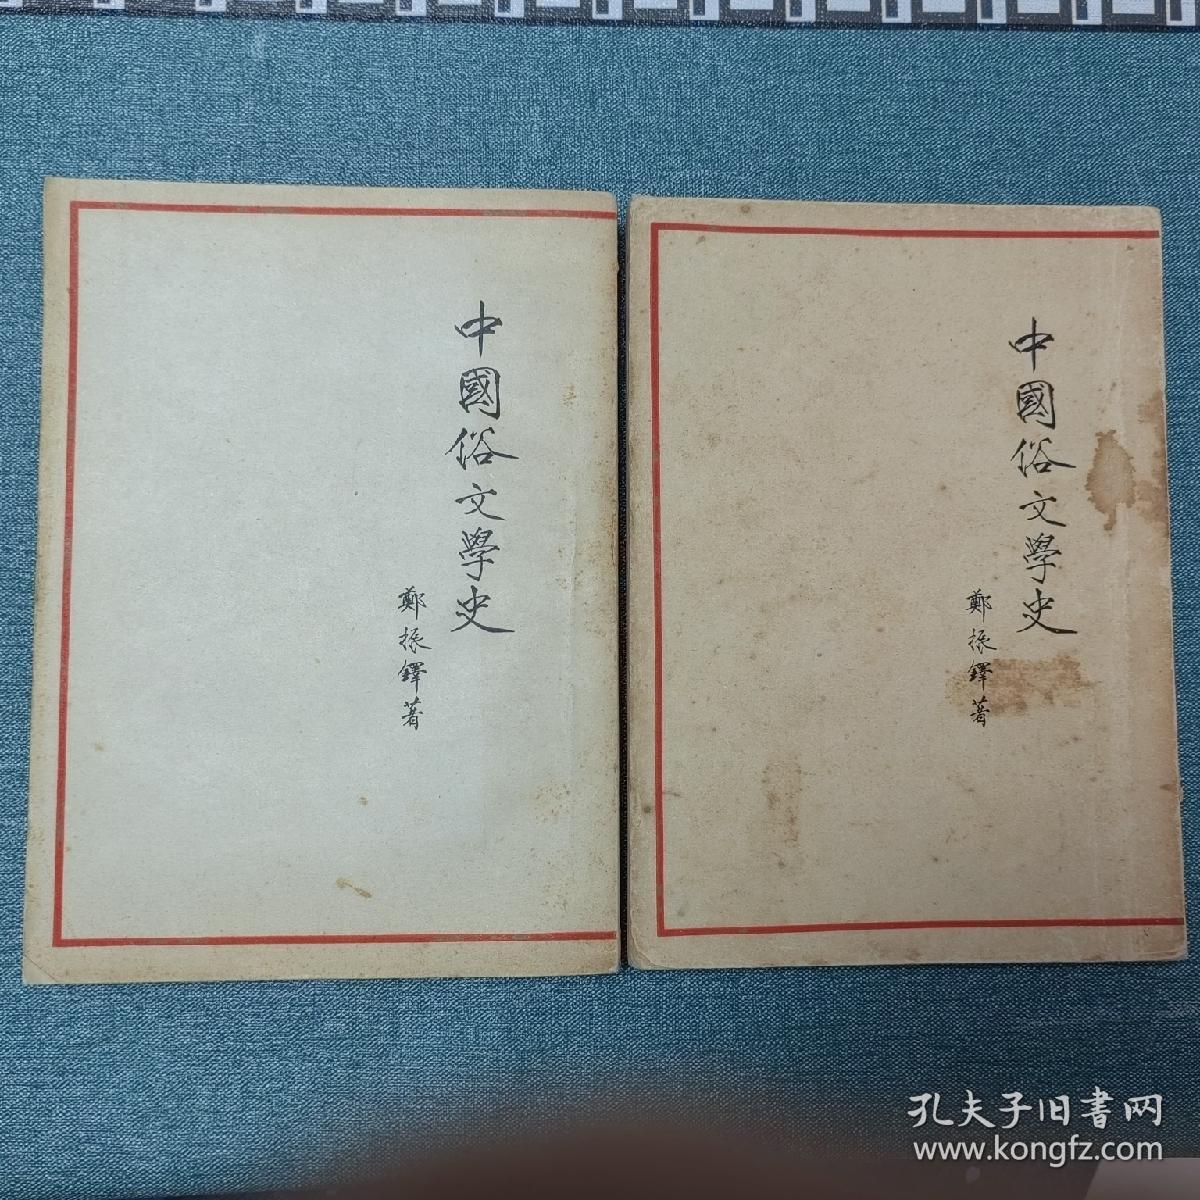 中國俗文學史
鄭振鐸著
中國俗文學史
鄭振鐸著
孔夫子旧書网
www.kongfz.com